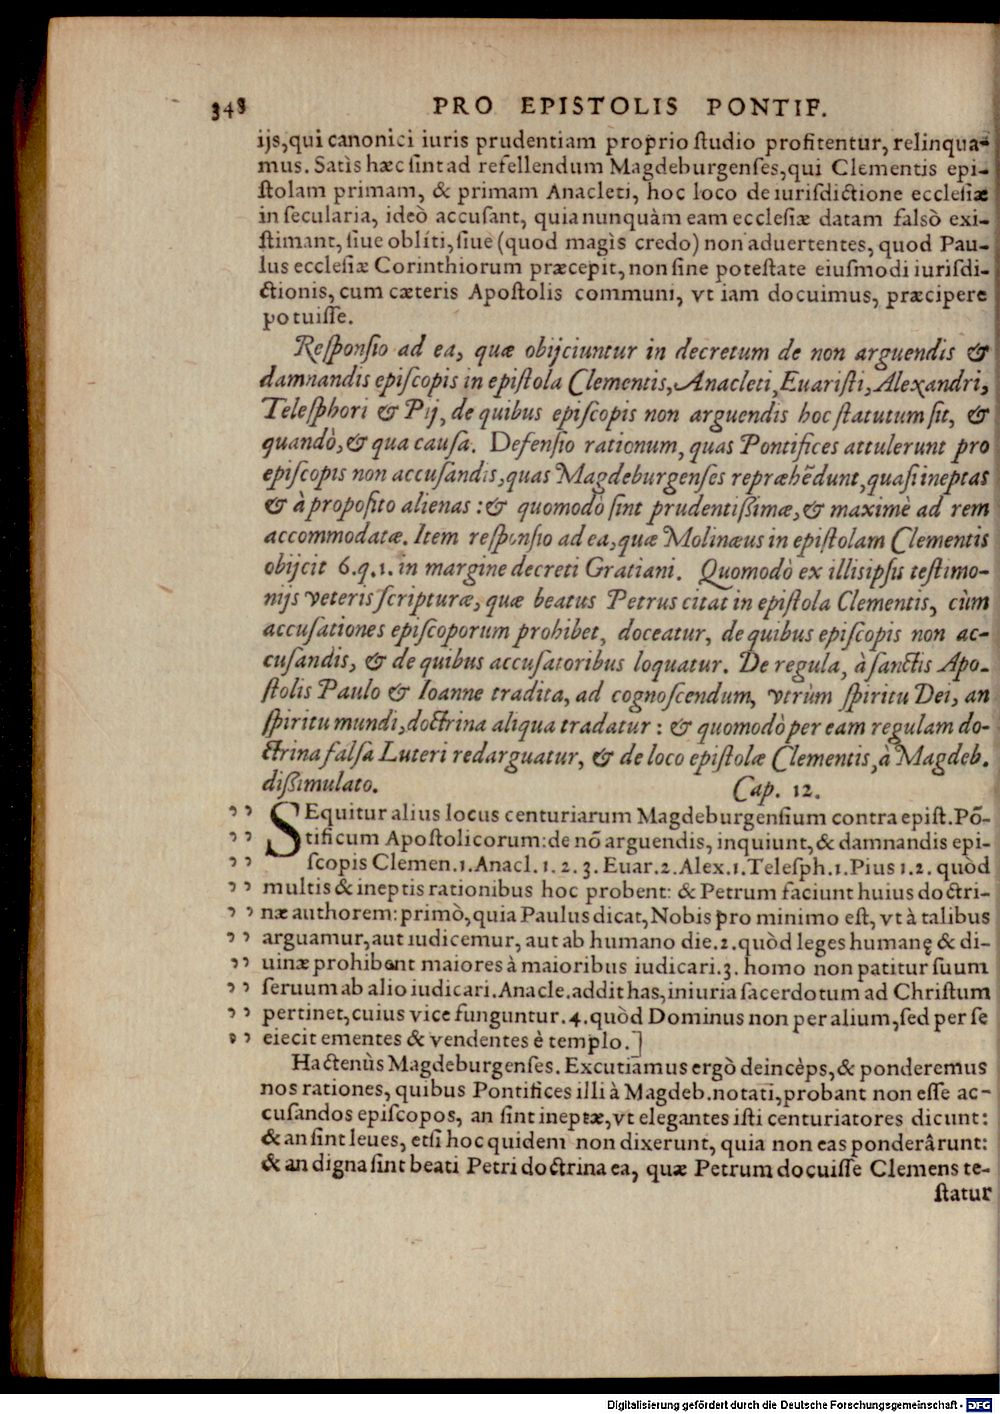 348 PRO EPISTOLIS PONTIF.
ijs, qui canonici iuris prudentiam proprio ſtudio profitentur, relinqua-
mus. Satìs hæc ſint ad refellendum Magdeburgenſes, qui Clementis epi-
ſtolam primam, & primam Anacleti, hoc loco de iuriſdictione eccleſiæ
in ſecularia, ideò accuſant, quia nunquàm eam eccleſiæ datam falsò exi-
ſtimant, ſiue oblíti, ſiue (quod magìs credo) non aduertentes, quod Pau-
lus eccleſiæ Corinthiorum præcepit, non ſine poteſtate eiuſmodi iuriſdi-
ctionis, cum cæteris Apoſtolis communi, vt iam docuimus, præcipere
potuiſſe.
Reſponſio ad ea, quæ obijciuntur in decretum de non arguendis &
damnandis epiſcopis in epiſtola Clementis, Anacleti, Euariſti, Alexandri,
Teleſphori & Pij, de quibus epiſcopis non arguendis hoc ſtatutum ſit, &
quandò, & qua cauſa. Defenſio rationum, quas Pontifices attulerunt pro
epiſcopis non accuſandis, quas Magdeburgenſes repræhẽdunt, quaſi ineptas
& à propoſito alienas: & quomodò ſint prudentißimæ, & maximè ad rem
accommodatæ. Item reſponſio ad ea, quæ Molinæus in epiſtolam Clementis
obijcit 6.q.1. in margine decreti Gratiani. Quomodò ex illis ipſis teſtimo-
nijs veteris ſcripturæ, quæ beatus Petrus citat in epiſtola Clementis, cùm
accuſationes epiſcoporum prohibet, doceatur, de quibus epiſcopis non ac-
cuſandis, & de quibus accuſatoribus loquatur. De regula, à ſanctis Apo-
ſtolis Paulo & Ioanne tradita, ad cognoſcendum, vtrùm ſpiritu Dei, an
ſpiritu mundi, doctrina aliqua tradatur: & quomodò per eam regulam do-
ctrina falſa Luteri redarguatur, & de loco epiſtolæ Clementis, à Magdeb.
dißimulato. Cap. 12.
SEquitur alius locus centuriarum Magdeburgenſium contra epiſt. Põ-
tificum Apoſtolicorum: de nõ arguendis, inquiunt, & damnandis epi-
ſcopis Clemen.1.Anacl.1.2.3.Euar.2.Alex.1.Teleſph.1.Pius 1.2. quòd
multis & ineptis rationibus hoc probent: & Petrum faciunt huius doctri-
næ authorem: primò, quia Paulus dicat, Nobis pro minimo eſt, vt à talibus
arguamur, aut iudicemur, aut ab humano die.2. quòd leges humanę & di-
uinæ prohibent maiores à maioribus iudicari.3. homo non patitur ſuum
ſeruum ab alio iudicari. Anacle. addit has, iniuria ſacerdotum ad Chriſtum
pertinet, cuius vice funguntur.4. quòd Dominus non per alium, ſed per ſe
eiecit ementes & vendentes è templo.]
Hactenùs Magdeburgenſes. Excutiamus ergò deincèps, & ponderemus
nos rationes, quibus Pontifices illi à Magdeb. notati, probant non eſſe ac-
cuſandos epiſcopos, an ſint ineptæ, vt elegantes iſti centuriatores dicunt:
& an ſint leues, etſi hoc quidem non dixerunt, quia non eas ponderârunt:
& an digna ſint beati Petri doctrina ea, quæ Petrum docuiſſe Clemens te-
ſtatur
Digitalisierung gefördert durch die Deutsche Forschungsgemeinschaft - DFG